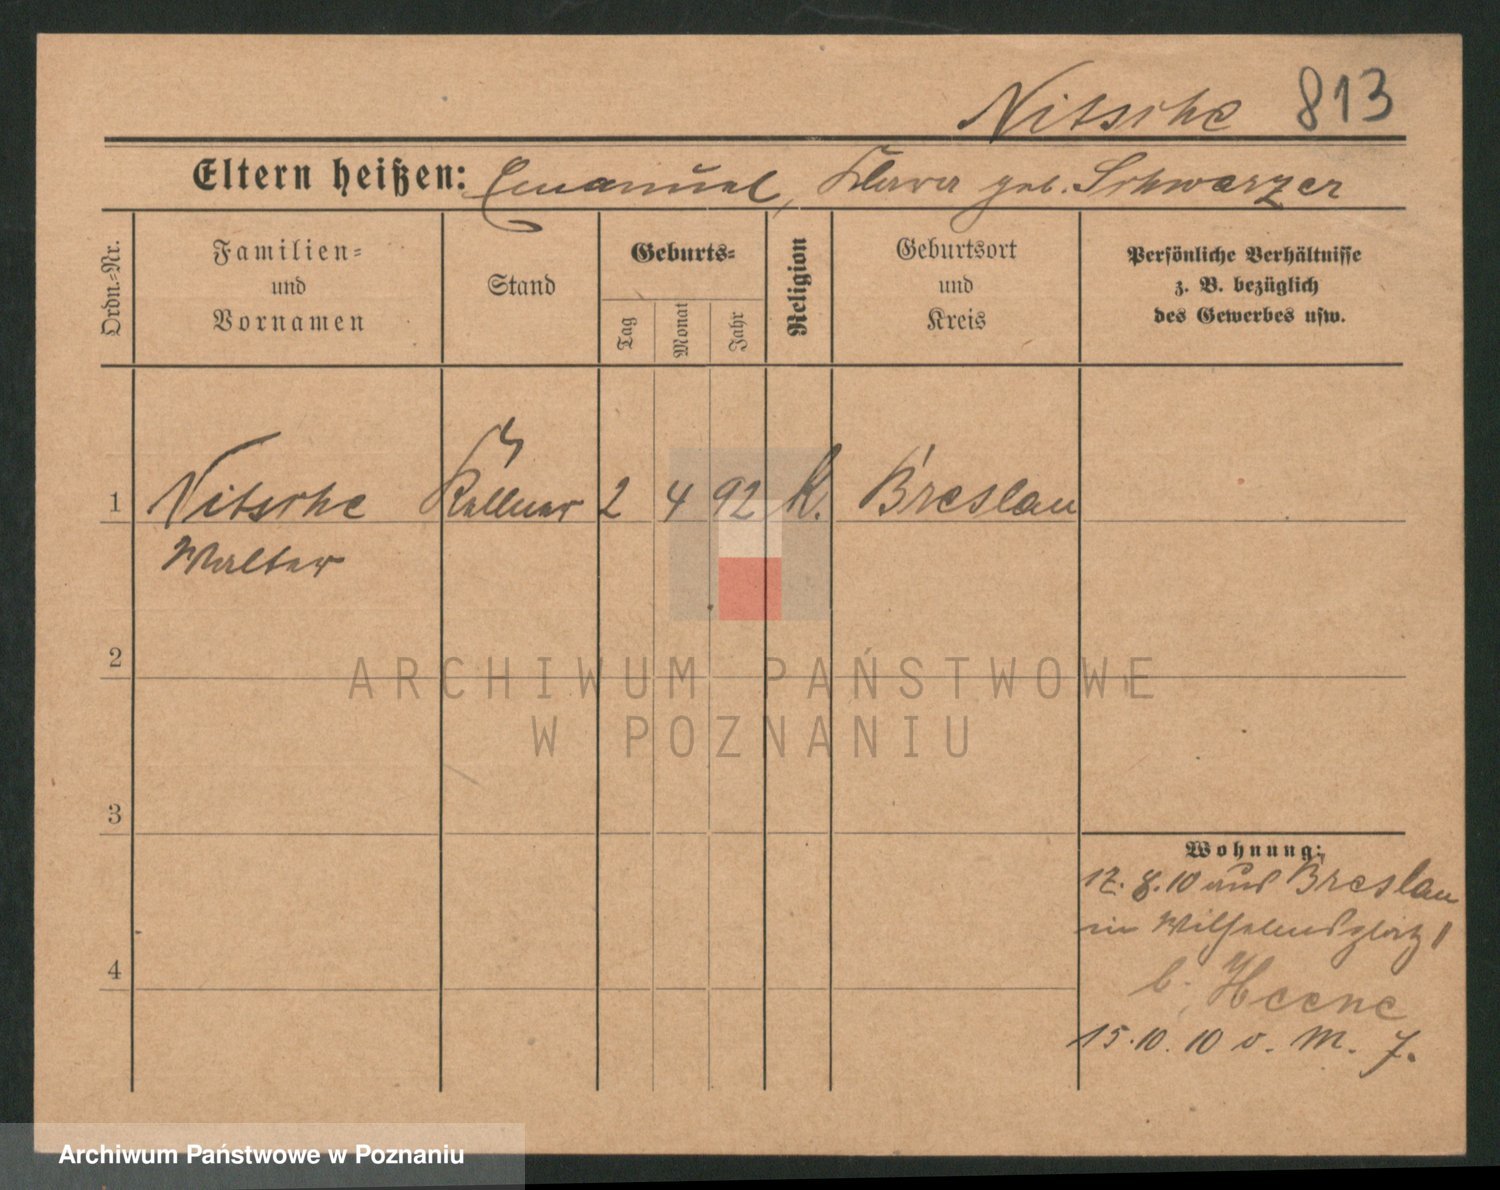 Nitsche 813
Eltern heißen: Emanuel, Klara geb. Schwarzer
Ordn.-Nr.
Familien-
und
Vornamen
Stand
Geburts-
Tag
Monat
Jahr
Religion
Geburtsort
und
Kreis
Persönliche Verhältnisse
z. B. bezüglich
des Gewerbes usw.
1 Nitsche Kellner 2 4 92 k. Breslau
Walter
2
3
4
Wohnung:
17. 8. 10 aus Breslau
in Wilhelmsplatz 1
b. Heene
15. 10. 10 v. M. J.
ARCHIWUM PAŃSTWOWE
W POZNANIU
Archiwum Państwowe w Poznaniu